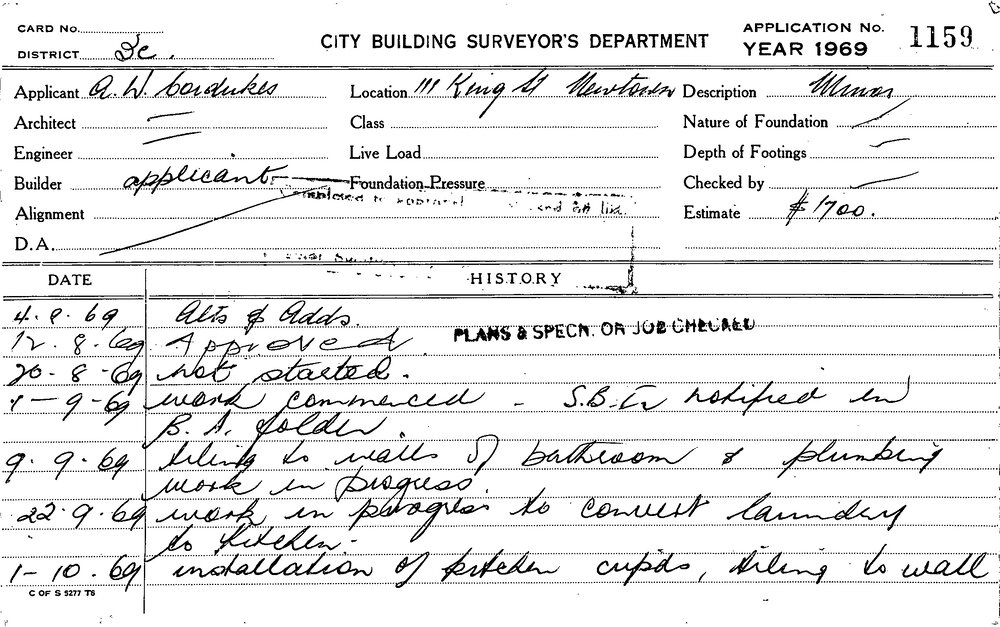 CARD No.
DISTRICT
CITY BUILDING SURVEYOR'S DEPARTMENT
APPLICATION No. 1159
YEAR 1969
Applicant A. W. Cordukes
Location 111 King St Newtown
Description Minor
Architect —
Class
Nature of Foundation
Engineer —
Live Load
Depth of Footings —
Builder applicant
Foundation Pressure
Checked by —
Alignment
Estimate $1700.
D.A.
DATE HISTORY
4. 8. 69 Alts & Adds.
PLANS & SPECN. OR JOB CHECKED
12. 8. 69 Approved
20-8-69 not started.
1-9-69 work commenced - notified in
B. A. folder.
9. 9. 69 tiling to walls of bathroom & plumbing
work in progress.
22.9.69 work in progress to convert laundry
to kitchen.
1-10.69 installation of kitchen cupds, tiling to wall
C OF S 5277 T5